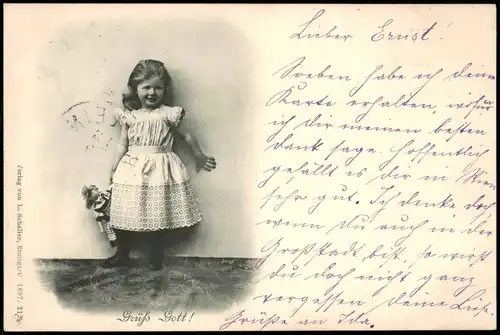 Lieber Ernst!
Soeben habe ich deine
Karte erhalten, wofür
ich dir meinen besten
Dank sage. Hoffentlich
gefällt es dir in Wien
sehr gut. Ich denke doch
wenn du auch in der
Großstadt bist, so wirst
du doch nicht ganz
vergessen deine Liebe.
Grüße an Ida.
Grüß Gott!
Verlag von L. Schaller, Stuttgart 1897.